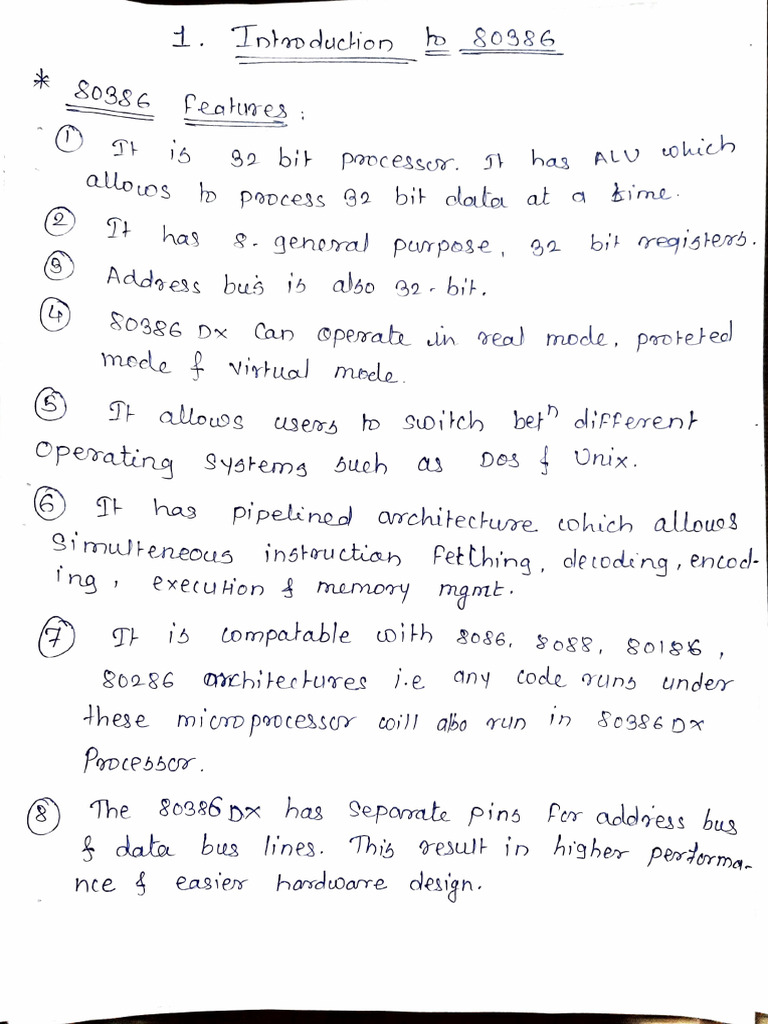 1. Introduction to 80386
* 80386 Features :
① It is 32 bit processor. It has ALU which
allows to process 32 bit data at a time.
② It has 8-general purpose, 32 bit registers.
③ Address bus is also 32-bit.
④ 80386 DX can operate in real mode, proteted
mode & virtual mode.
⑤ It allows users to switch betⁿ different
operating systems such as DOS & Unix.
⑥ It has pipelined architecture which allows
simulteneous instruction fetching, decoding, encod-
ing, execution & memory mgmt.
⑦ It is compatable with 8086, 8088, 80186,
80286 architectures i.e any code runs under
these microprocessor will also run in 80386 DX
Processor.
⑧ The 80386 DX has separate pins for address bus
& data bus lines. This result in higher performa-
nce & easier hardware design.